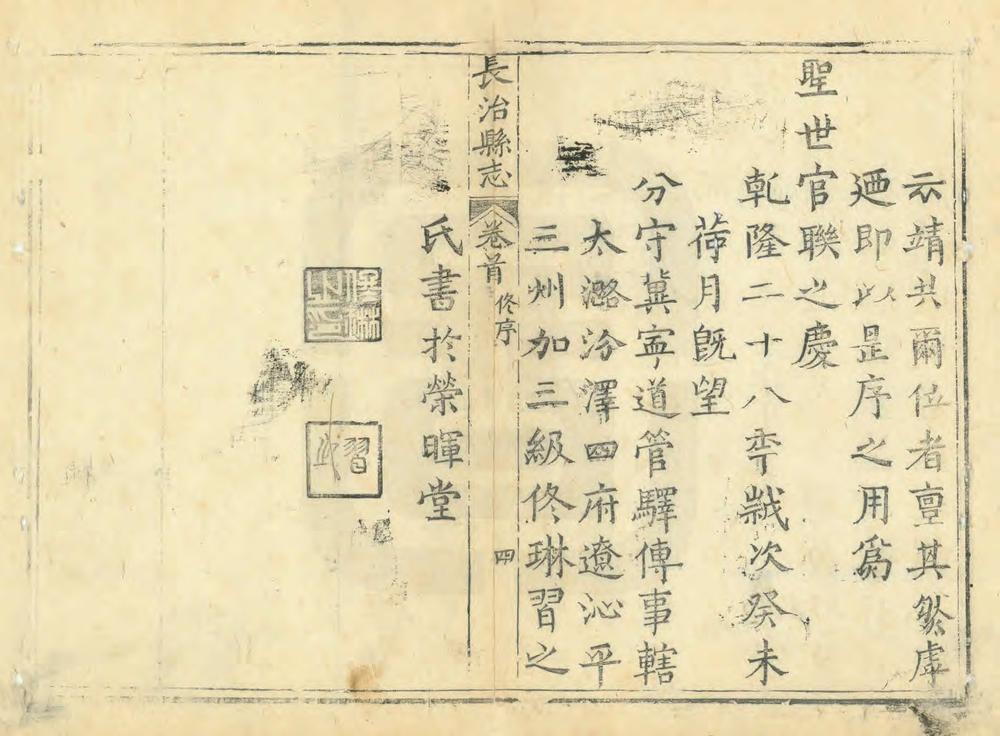 云靖共爾位者亶其然虖
迺即以是序之用爲
聖世官聯之慶
乾隆二十八年歲次癸未
荷月旣望
分守冀寧道管驛傳事轄
太潞汾澤四府遼沁平
三州加三級佟琳習之
長治縣志
卷首
佟序
四
氏書於榮暉堂
佟琳之印
習之